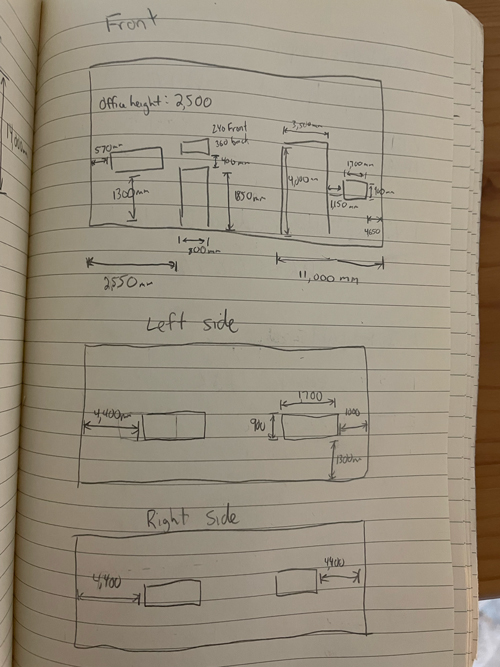 Front
Office height: 2,500
240 Front
360 back
3,500mm
570mm
400mm
1700mm
4,000mm
1300mm
1850mm
1150mm
4650
800mm
2,550mm
11,000 mm
Left side
1700
4,400mm
900
1000
1300mm
Right Side
4,400
4400